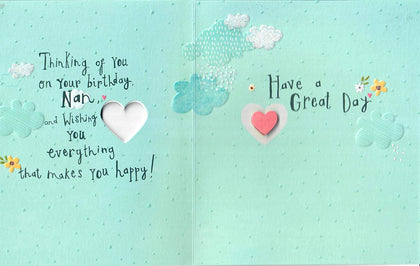 Thinking of you
on your birthday,
Nan,
and Wishing
you
everything
that makes you happy!
Have a
Great Day